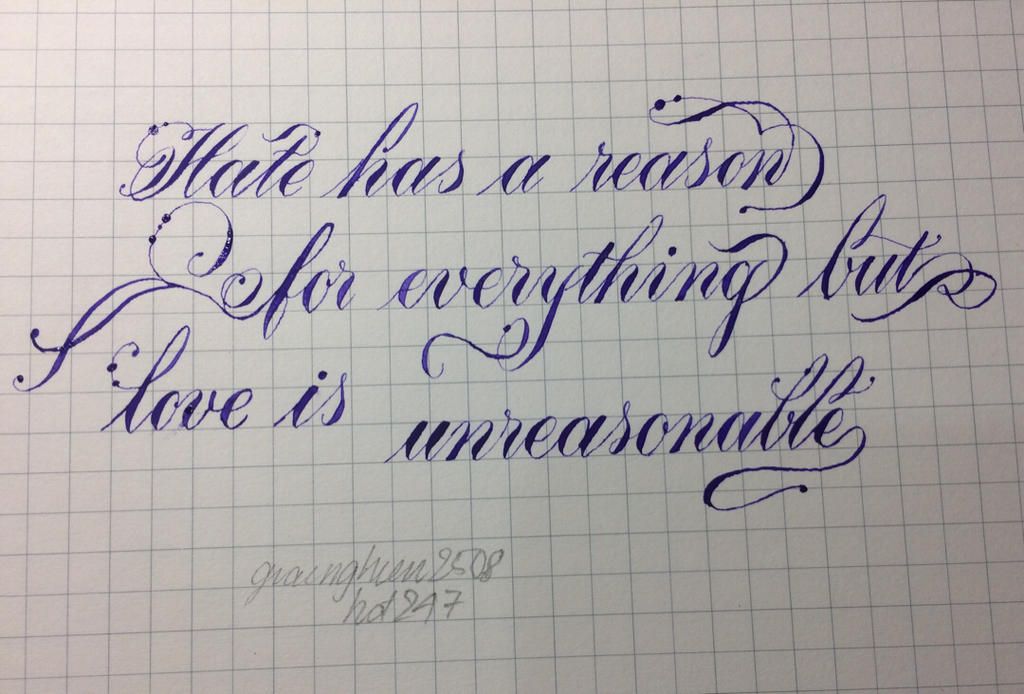 Hate has a reason
for everything but
love is unreasonable
hd247